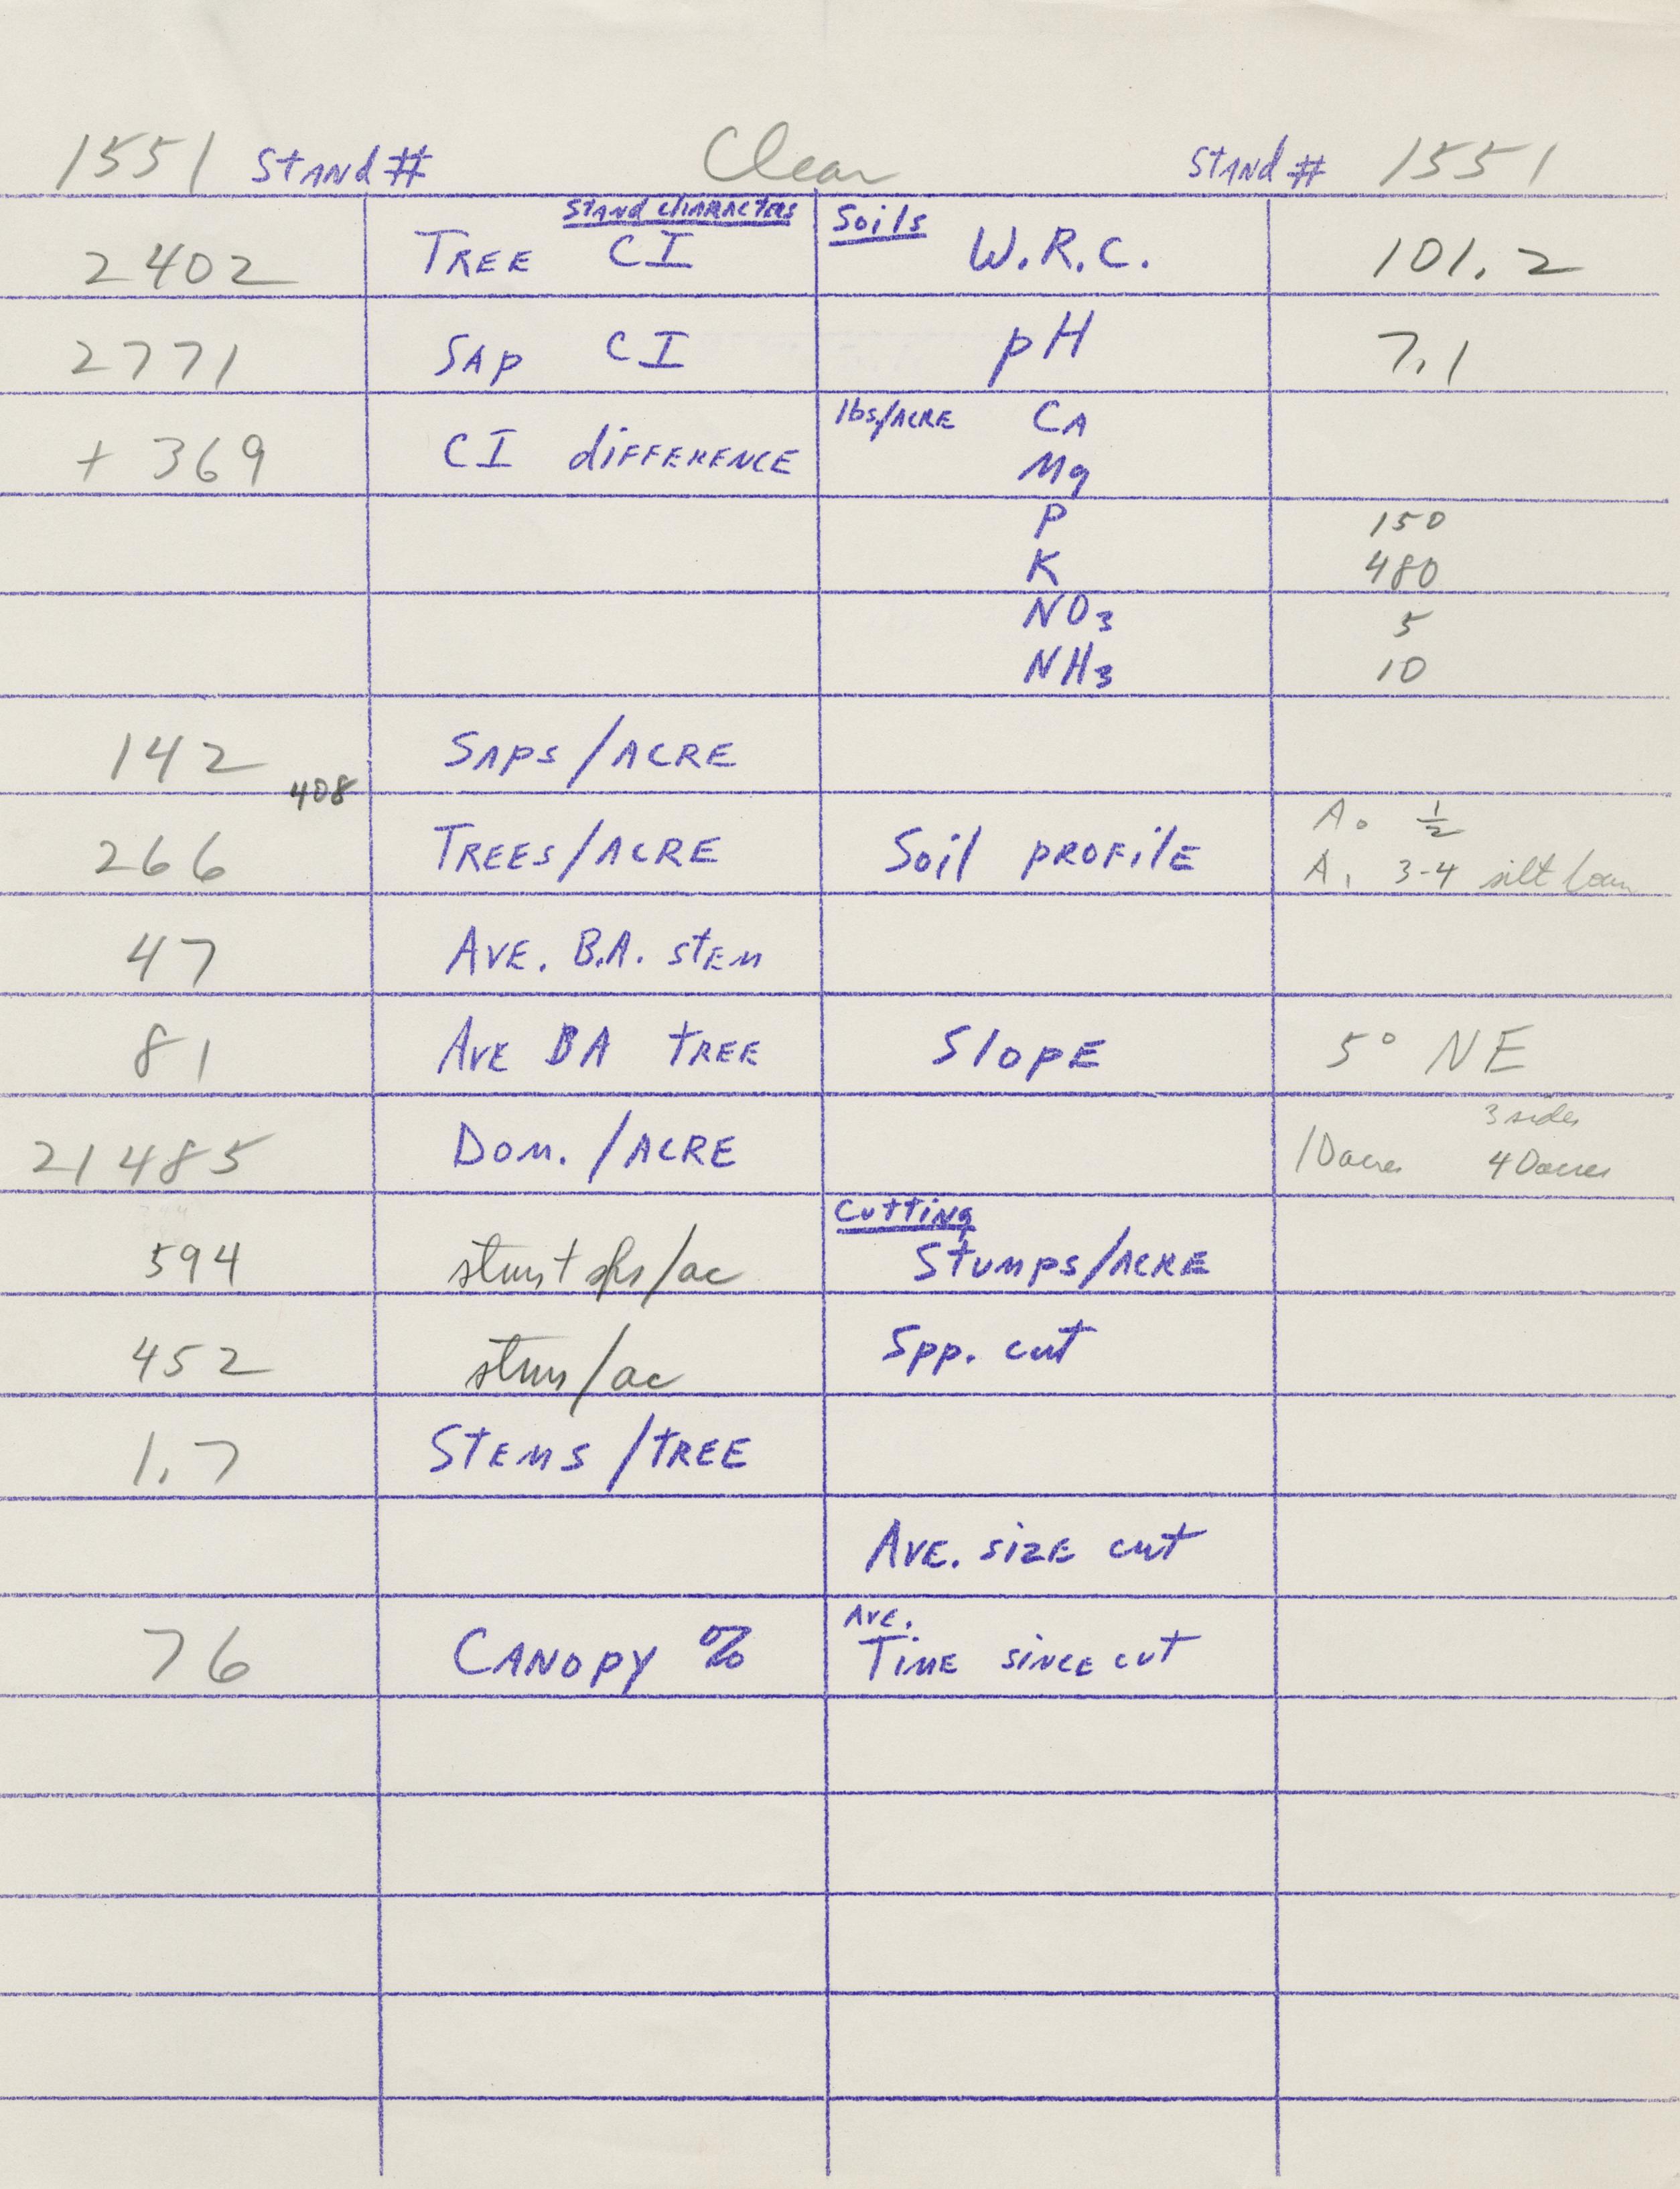 1551 Stand # Clear Stand # 1551
Stand characters Soils
2402 Tree CI W.R.C. 101.2
2771 Sap CI pH 7.1
lbs/Acre Ca
+ 369 CI difference Mg
P 150
K 480
NO3 5
NH3 10
142 Saps/Acre
408
A0 1/2
266 Trees/Acre Soil profile A1 3-4 silt loam
47 Ave. B.A. stem
81 Ave BA tree Slope 5° NE
3 sides
21485 Dom./Acre 10 acres 40 acres
Cutting
594 stms + sps/ac Stumps/Acre
452 stms/ac Spp. cut
1.7 Stems/tree
Ave. size cut
Ave.
76 Canopy % Time since cut